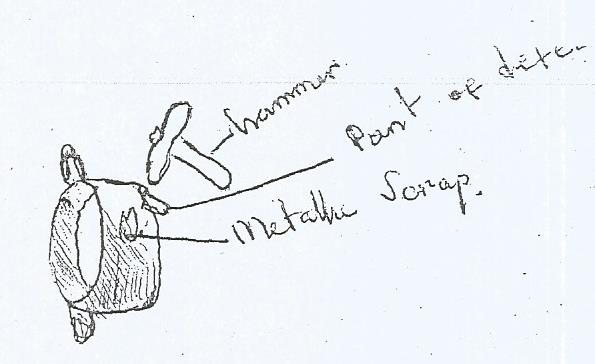 hammer
Part of
Metallic Scrap.